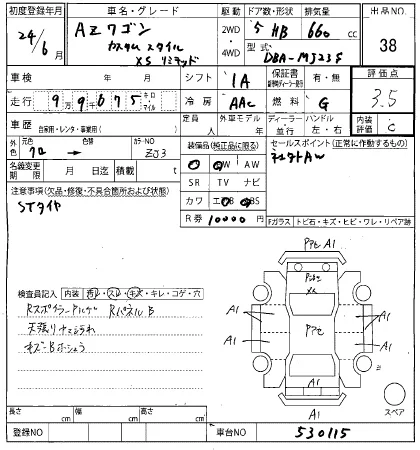 初度登録年月 車名・グレード 駆動 ドア数・形状 排気量 出品NO
24/6 月 AZワゴン 2WD ・ 4WD 5 HB 660 cc 38
カスタムスタイル 型式
XSリミテッド DBA-MJ23S
車検 年 月 シフト IA 保証書 有・無 評価点
走行 9万9千675 キロ マイル 冷房 AAC 燃料 G 3.5
車歴 自家用・レンタ・事業用( ) 定員 人 外車モデル 年 ディーラー・並行 ハンドル 左・右 内装 C
外色 元色 クロ 色替 カラーNO ZJ3 装備品(純正品に限る) セールスポイント(正常に作動するもの)
AW 社外AW
名義変更期限 月 日迄 積載 t SR TV ナビ
注意事項(欠品・修復・不具合箇所および状態) カワ エアB ABS
STタイヤ R券 10000 円 Fガラス トビ石・キズ・ヒビ・ワレ・リペア跡
検査員記入 内装 汚れ・スレ・キズ・キレ・コゲ・穴
Rスポイラー Rパネル B
天張り
キズーB
A1
A1
A1
A1
A1
A1
スペア
長さ cm 幅 cm 高さ cm
登録NO 車台NO 530115